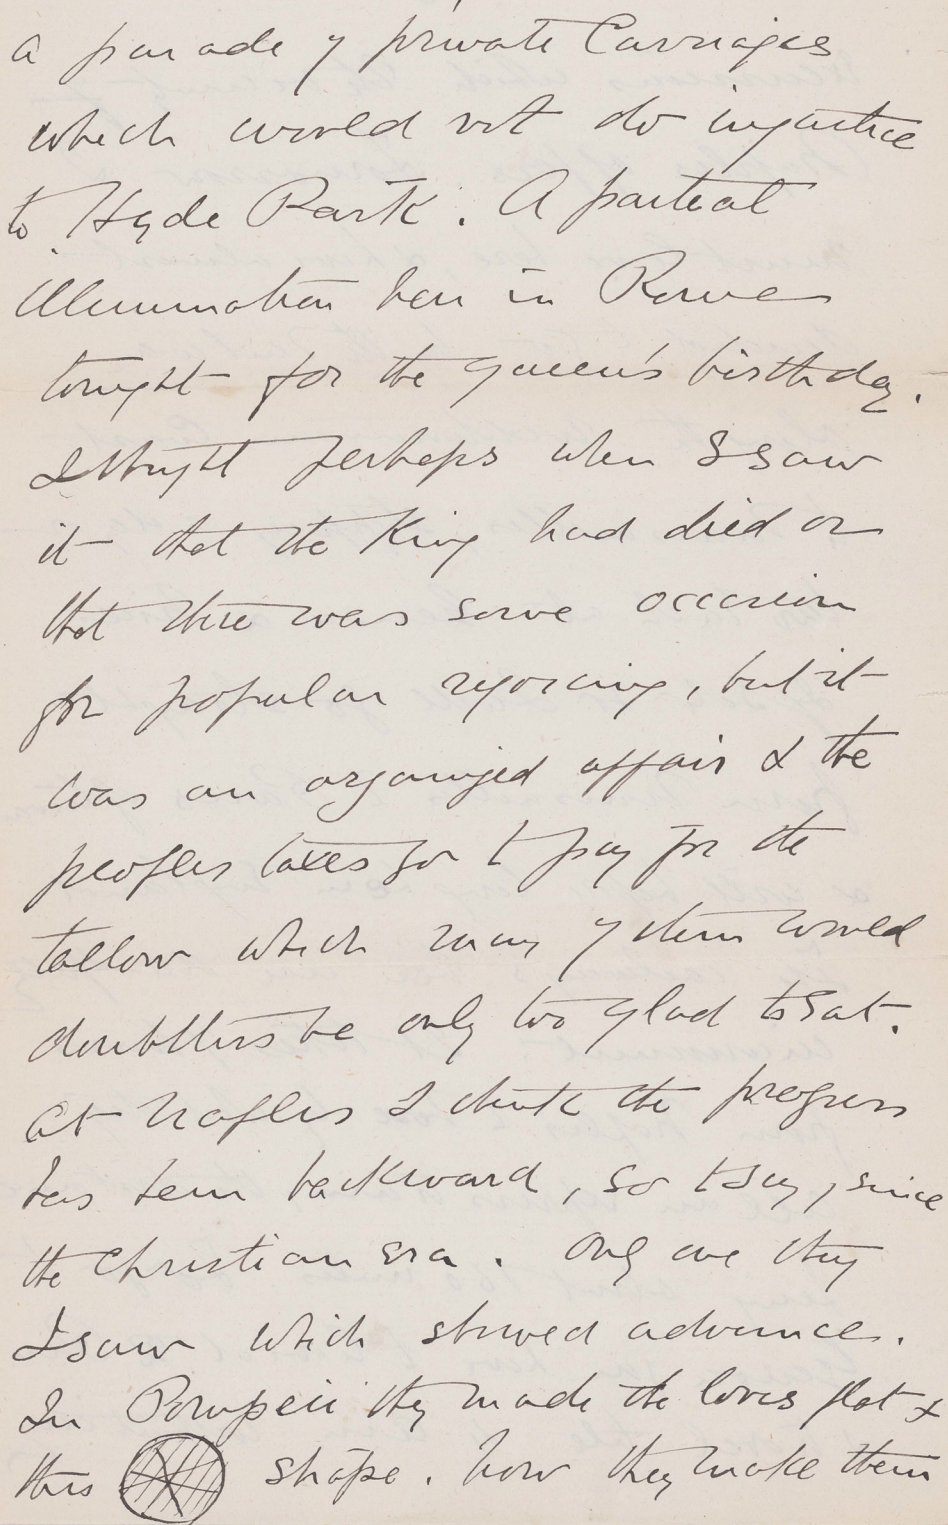 a parade of private Carriages
which would not do injustice
to Hyde Park. A partial
illumination here in Rome
tonight for the queen's birthday.
I thought perhaps when I saw
it that the King had died or
that there was some occasion
for popular rejoicing, but it
was an organized affair & the
peoples taxes go to pay for the
tallow which many of them would
doubtless be only too glad to eat.
At Naples I think the progress
has been backward, so to say, since
the Christian era. Only one thing
I saw which showed advance.
In Pompeii they made the loves flat &
this shape. Now they make them